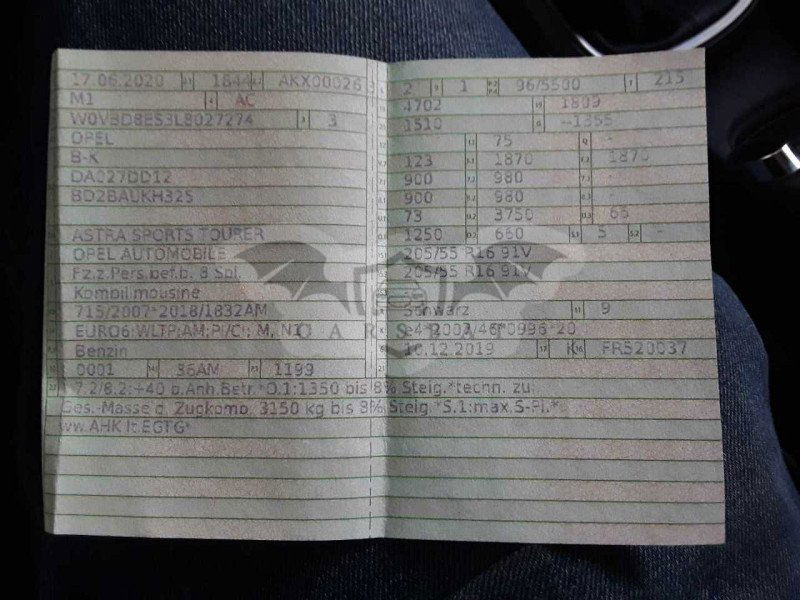 17.06.2020 1844 AKX00026
M1 AC
W0VBD8ES3L8027274 3
OPEL
B-K
DA027DD12
BD2BAUKH32S
ASTRA SPORTS TOURER
OPEL AUTOMOBILE
Fz.z.Pers.bef.b. 8 Spl.
Kombilimousine
715/2007*2018/1832AM
EURO6;WLTP;AM;PI/CI; M, N1
Benzin
0001 36AM 1199
2 1 96/5500 215
4702 1809
1510 --1355
75 -
123 1870 1870
900 980 -
900 980 -
73 3750 66
1250 660 5 -
205/55 R16 91V
205/55 R16 91V
Schwarz 9
e4*2007/46*0996*20
10.12.2019 K FR520037
7.2/8.2:+40 b.Anh.Betr.*O.1:1350 bis 8% Steig.*techn. zul.
Ges.-Masse d. Zugkomb. 3150 kg bis 8% Steig.*S.1:max.S-Pl.*
ww.AHK lt.EGTG*
CARSBAT